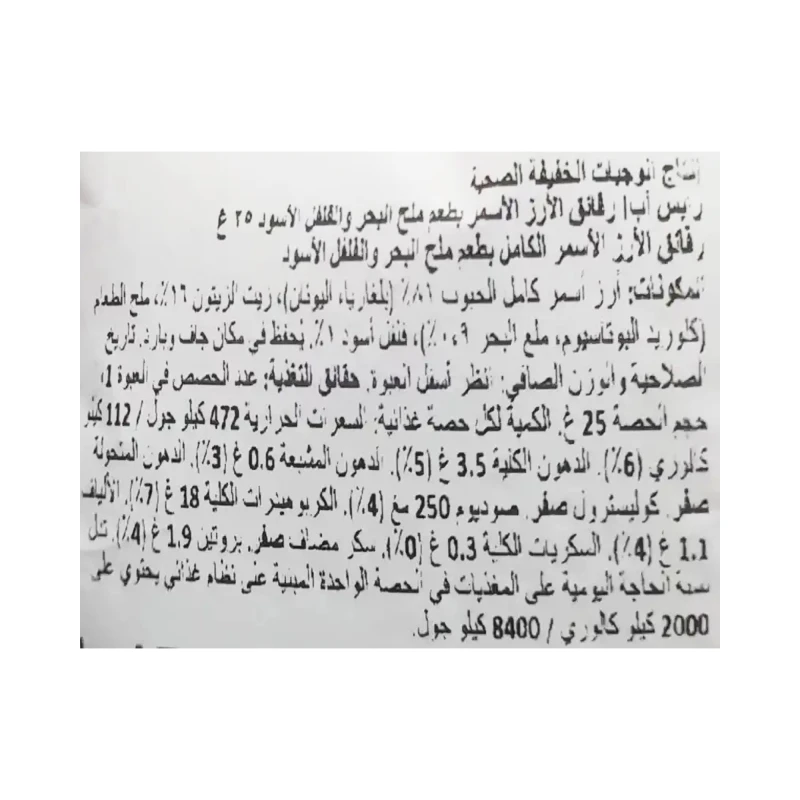 إنتاج الوجبات الخفيفة الصحية
رايس أب! رقائق الأرز الأسمر بطعم ملح البحر والفلفل الأسود ٢٥ غ
رقائق الأرز الأسمر الكامل بطعم ملح البحر والفلفل الأسود
المكونات: أرز أسمر كامل الحبوب ٨١٪ (بلغاريا، اليونان)، زيت الزيتون ١٦٪، ملح الطعام
(كلوريد البوتاسيوم، ملح البحر ٠،٩٪)، فلفل أسود ١٪. يُحفظ في مكان جاف وبارد. تاريخ
الصلاحية والوزن الصافي: انظر أسفل العبوة. حقائق التغذية: عدد الحصص في العبوة 1،
حجم الحصة 25 غ. الكمية لكل حصة غذائية: السعرات الحرارية 472 كيلو جول / 112 كيلو
كالوري (6٪). الدهون الكلية 3.5 غ (5٪). الدهون المشبعة 0.6 غ (3٪). الدهون المتحولة
صفر. كوليسترول صفر. صوديوم 250 مغ (4٪). الكربوهيدرات الكلية 18 غ (7٪). الألياف
1.1 غ (4٪). السكريات الكلية 0.3 غ (0٪). سكر مضاف صفر. بروتين 1.9 غ (4٪). تدل
نسبة الحاجة اليومية على المغذيات في الحصة الواحدة المبنية على نظام غذائي يحتوي على
2000 كيلو كالوري / 8400 كيلو جول.